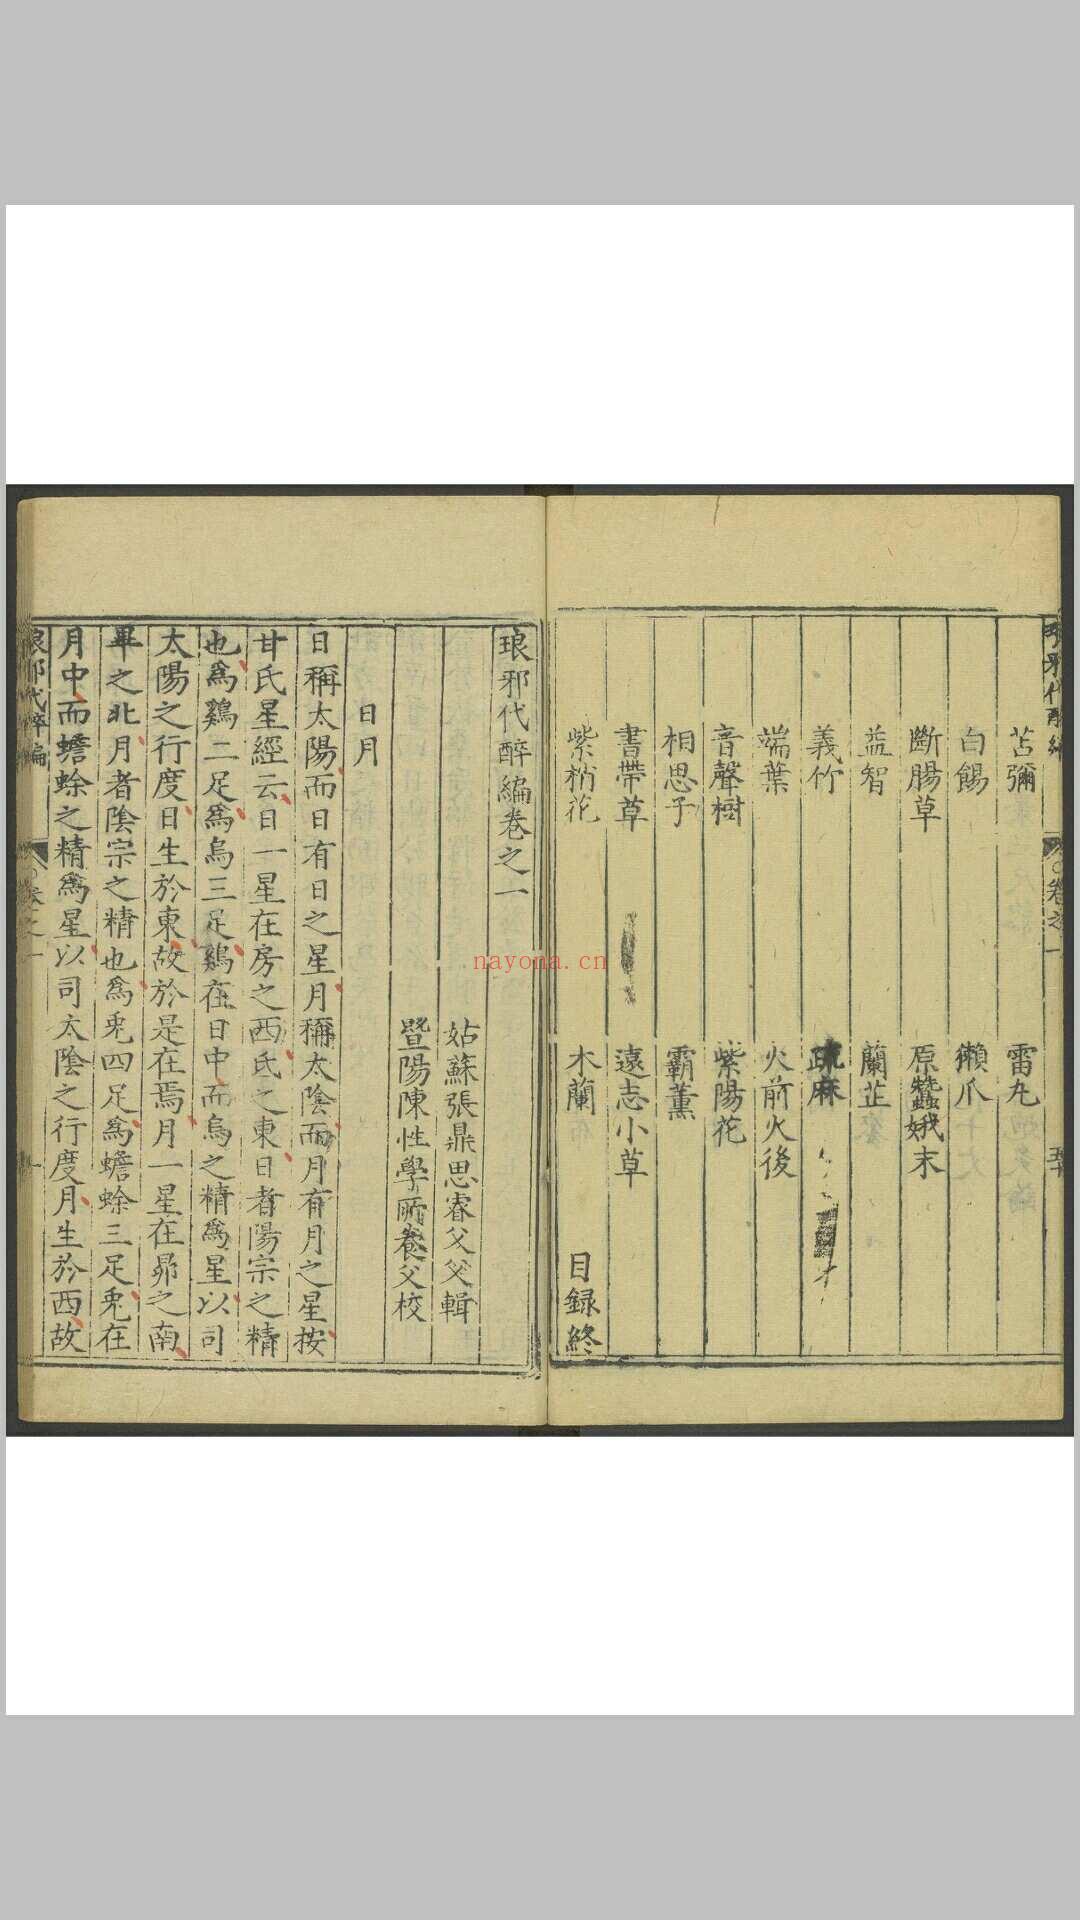 苫彌　雷丸
白餳　獺爪
斷腸草　原蠶娥末
益智　蘭芷
義竹　疏麻
端葉　火前火後
音聲樹　紫陽花
相思子　霸薰
書帶草　遠志小草
紫梢花　木蘭　目録終
琅邪代醉編卷之一
姑蘇張鼎思睿父父輯
暨陽陳性學所養父校
日月
日稱太陽而日有日之星月稱太陰而月有月之星按
甘氏星經云日一星在房之西氐之東日者陽宗之精
也爲鷄二足爲烏三足鷄在日中而烏之精爲星以司
太陽之行度日生於東故於是在焉月一星在昴之南
畢之北月者陰宗之精也爲兎四足爲蟾蜍三足兎在
月中而蟾蜍之精爲星以司太陰之行度月生於西故
琅邪代醉編　卷之一　一
nayona.cn